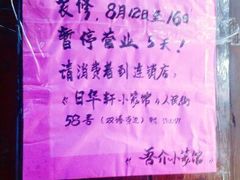 装修，8月12日至16日
暂停营业5天！
请消费者到连锁店，
《日华轩小菜馆》人民街
58号（双塔寺边）
《吾介小菜馆》